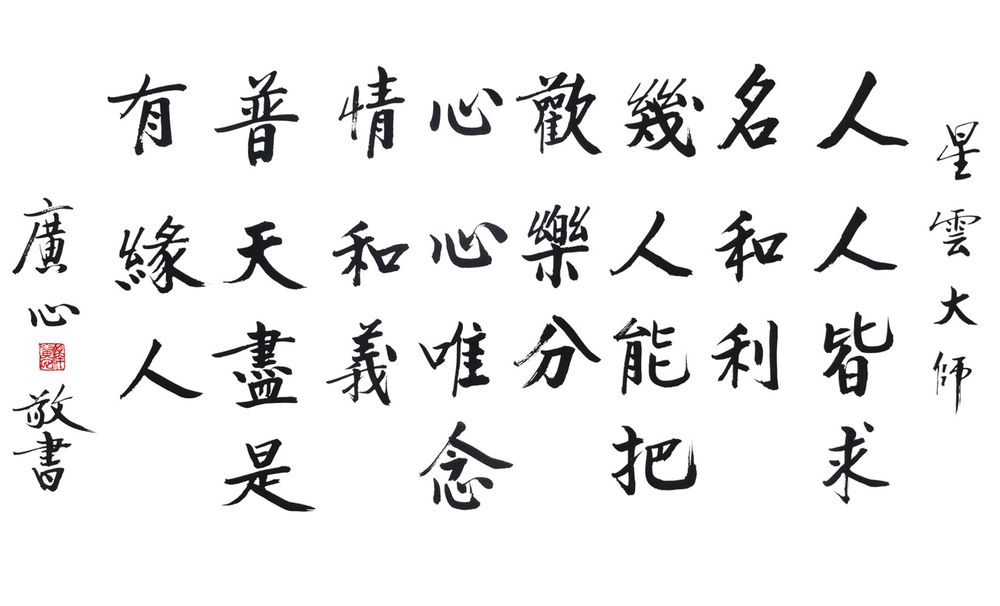 星雲大師
人人皆求
名和利
幾人能把
歡樂分
心心唯念
情和義
普天盡是
有緣人
廣心敬書